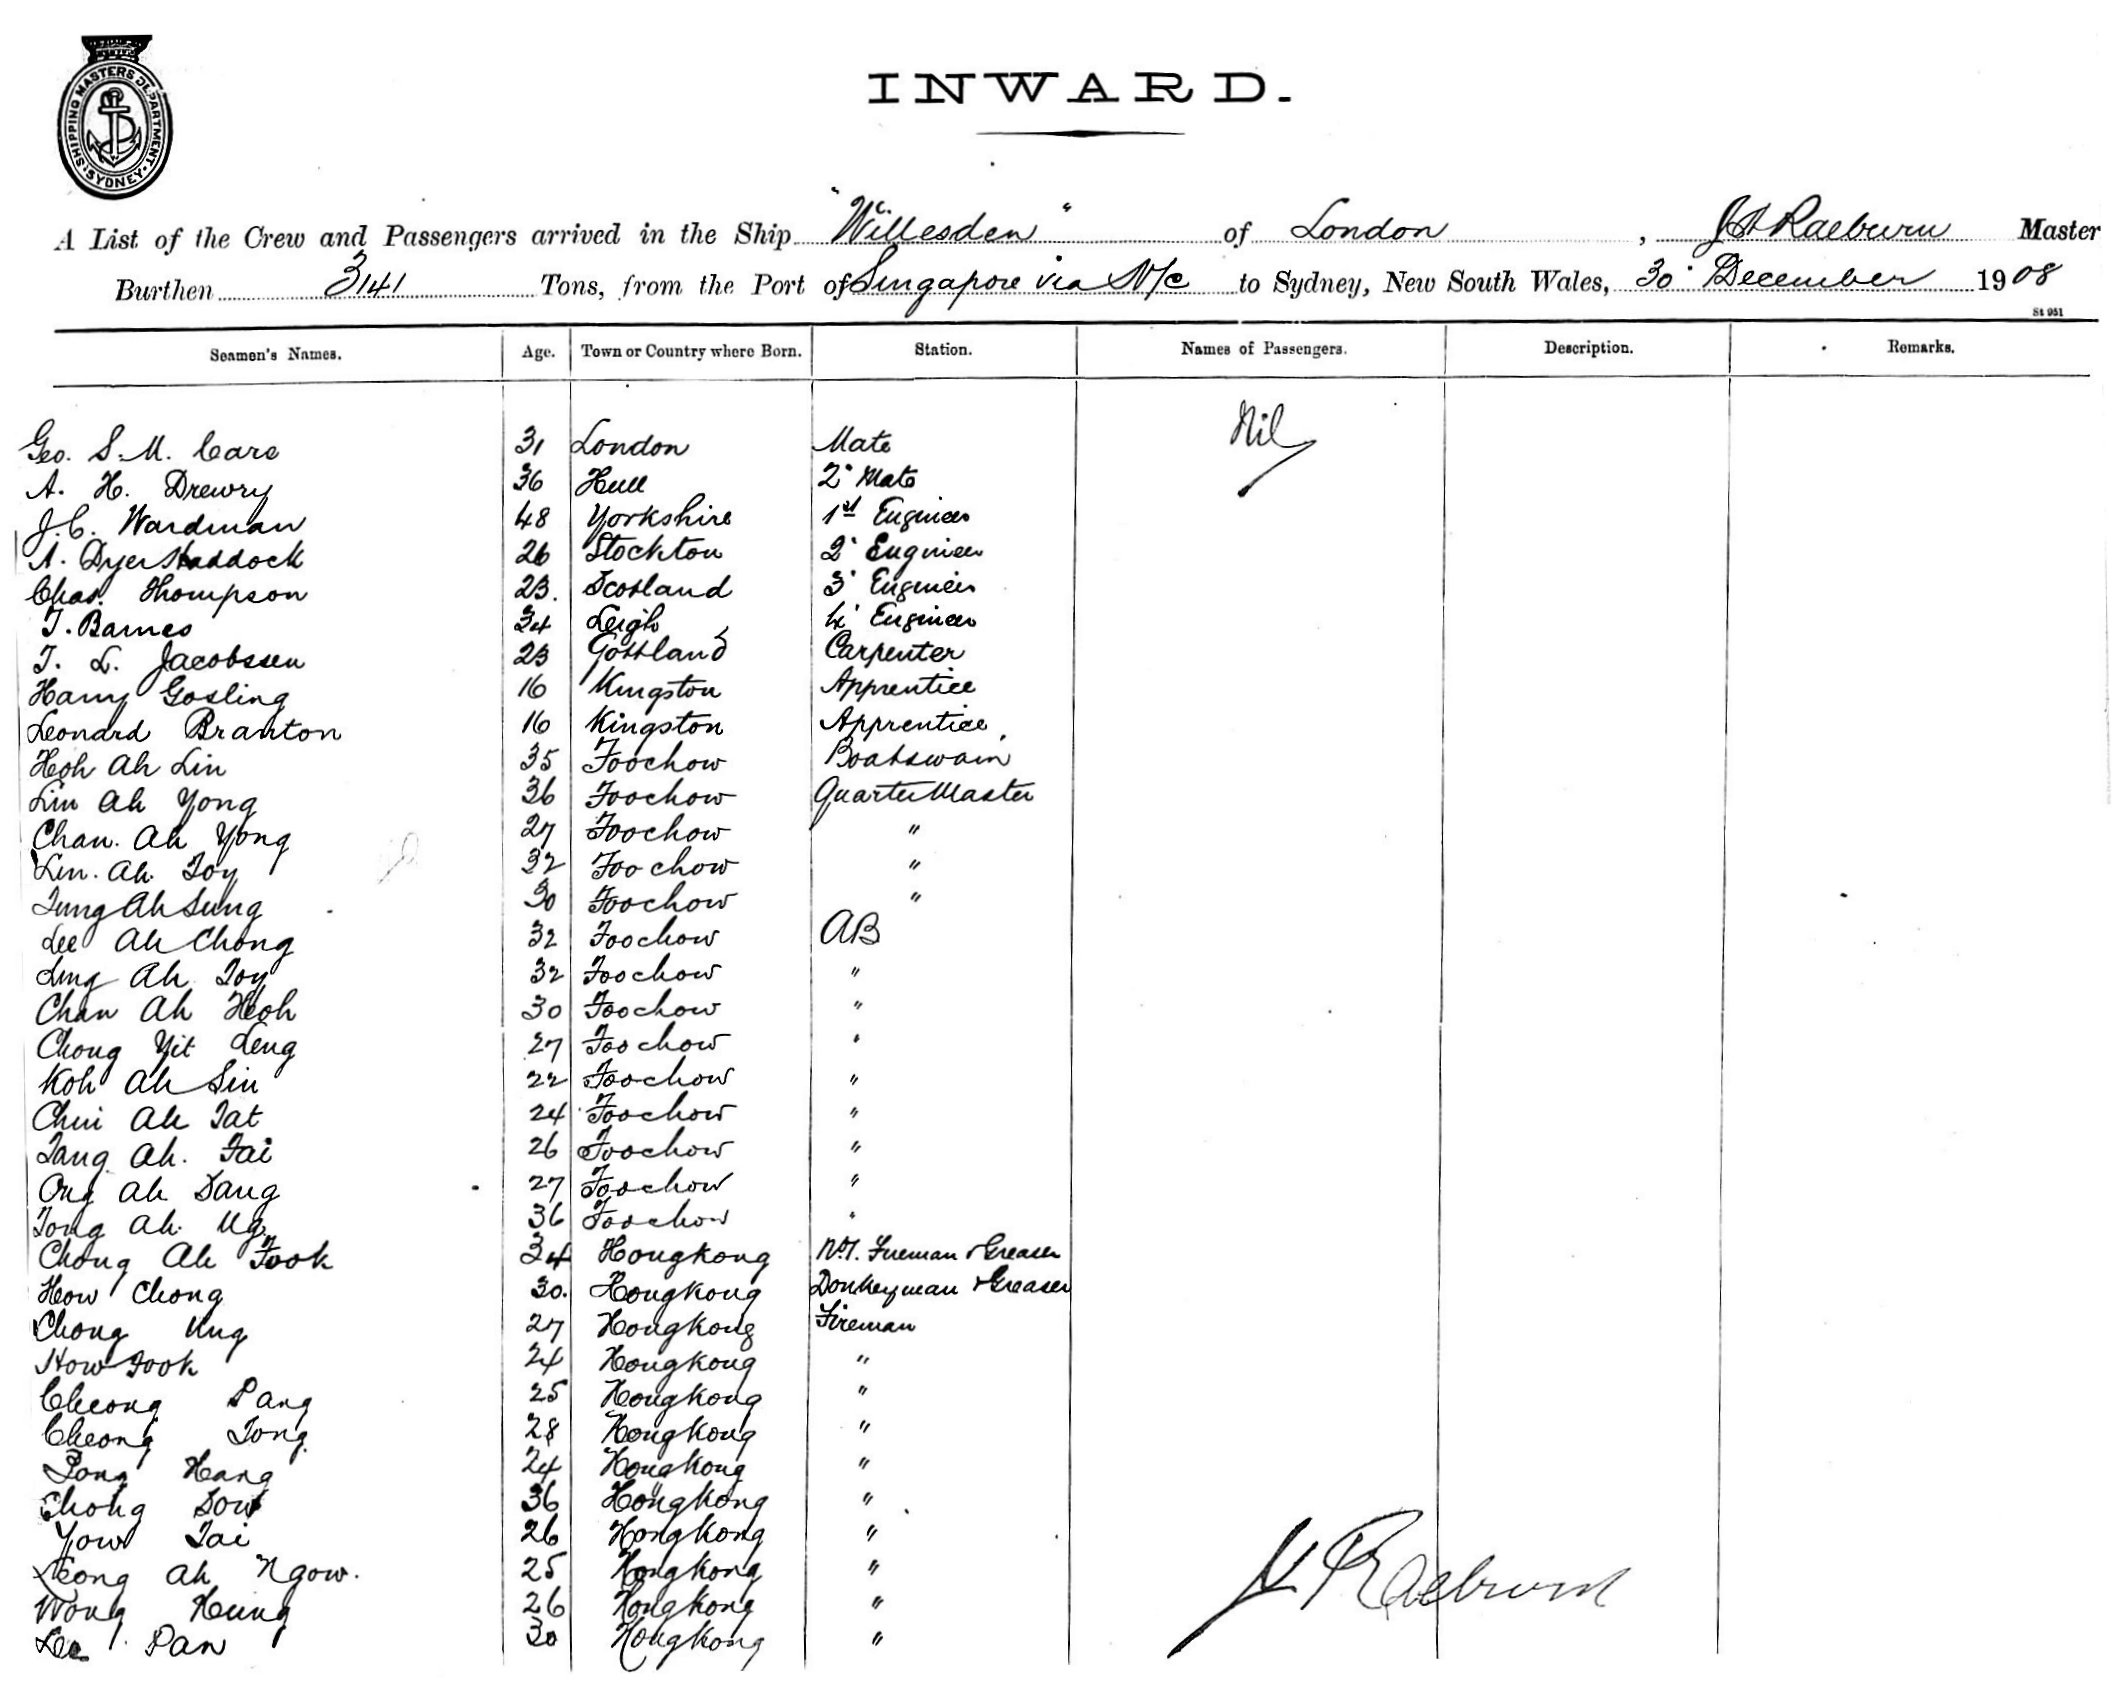 SHIPPING MASTERS DEPARTMENT · SYDNEY ·
INWARD.
A List of the Crew and Passengers arrived in the Ship "Willesden" of London, J H Raeburn Master
Burthen 3141 Tons, from the Port of Singapore via N/C to Sydney, New South Wales, 30 December 1908
St 951
Seamen's Names. Age. Town or Country where Born. Station. Names of Passengers. Description. Remarks.
Geo. S. M. Care 31 London Mate Nil
A. H. Drewry 36 Hull 2 Mate
J. C. Wardman 48 Yorkshire 1st Engineer
A. Dyer Haddock 26 Stockton 2 Engineer
Chas. Thompson 23. Scotland 3 Engineer
T. Barnes 34 Leigh 4 Engineer
T. L. Jacobssen 23 Gottland Carpenter
Harry Gosling 16 Kingston Apprentice
Leonard Branton 16 Kingston Apprentice
Hoh Ah Lin 35 Foochow Boatswain
Lin Ah Yong 36 Foochow Quarter Master
Chan. Ah Yong 27 Foochow "
Lin. Ah. Toy 32 Foochow "
Tung Ah Sung 30 Foochow "
Lee Ah Chong 32 Foochow AB
Ling Ah Toy 32 Foochow "
Chan Ah Hoh 30 Foochow "
Chong Yit Leng 27 Foochow "
Koh Ah Sin 22 Foochow "
Chui Ah Tat 24 Foochow "
Tang Ah. Tai 26 Foochow "
Ong Ah Sang 27 Foochow "
Tong Ah. Ug 36 Foochow "
Chong Ah Fook 34 Hongkong No 1. Fireman & Greaser
How Chong 30. Hongkong Donkeyman & Greaser
Chong Ung 27 Hongkong Fireman
How Fook 24 Hongkong "
Cheong Pang 25 Hongkong "
Cheong Tong 28 Hongkong "
Pong Hang 24 Hongkong "
Chong Sow 36 Hongkong "
Yow Tai 26 Hongkong "
Leong Ah Ngow. 25 Hongkong "
Wong Heung 26 Hongkong "
Lee Pan 30 Hongkong "
J H Raeburn